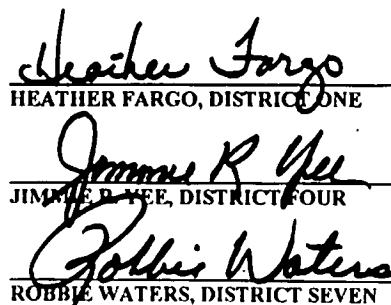 Heather Fargo
HEATHER FARGO, DISTRICT ONE
Jimmie R Yee
JIMMIE R. YEE, DISTRICT FOUR
Robbie Waters
ROBBIE WATERS, DISTRICT SEVEN